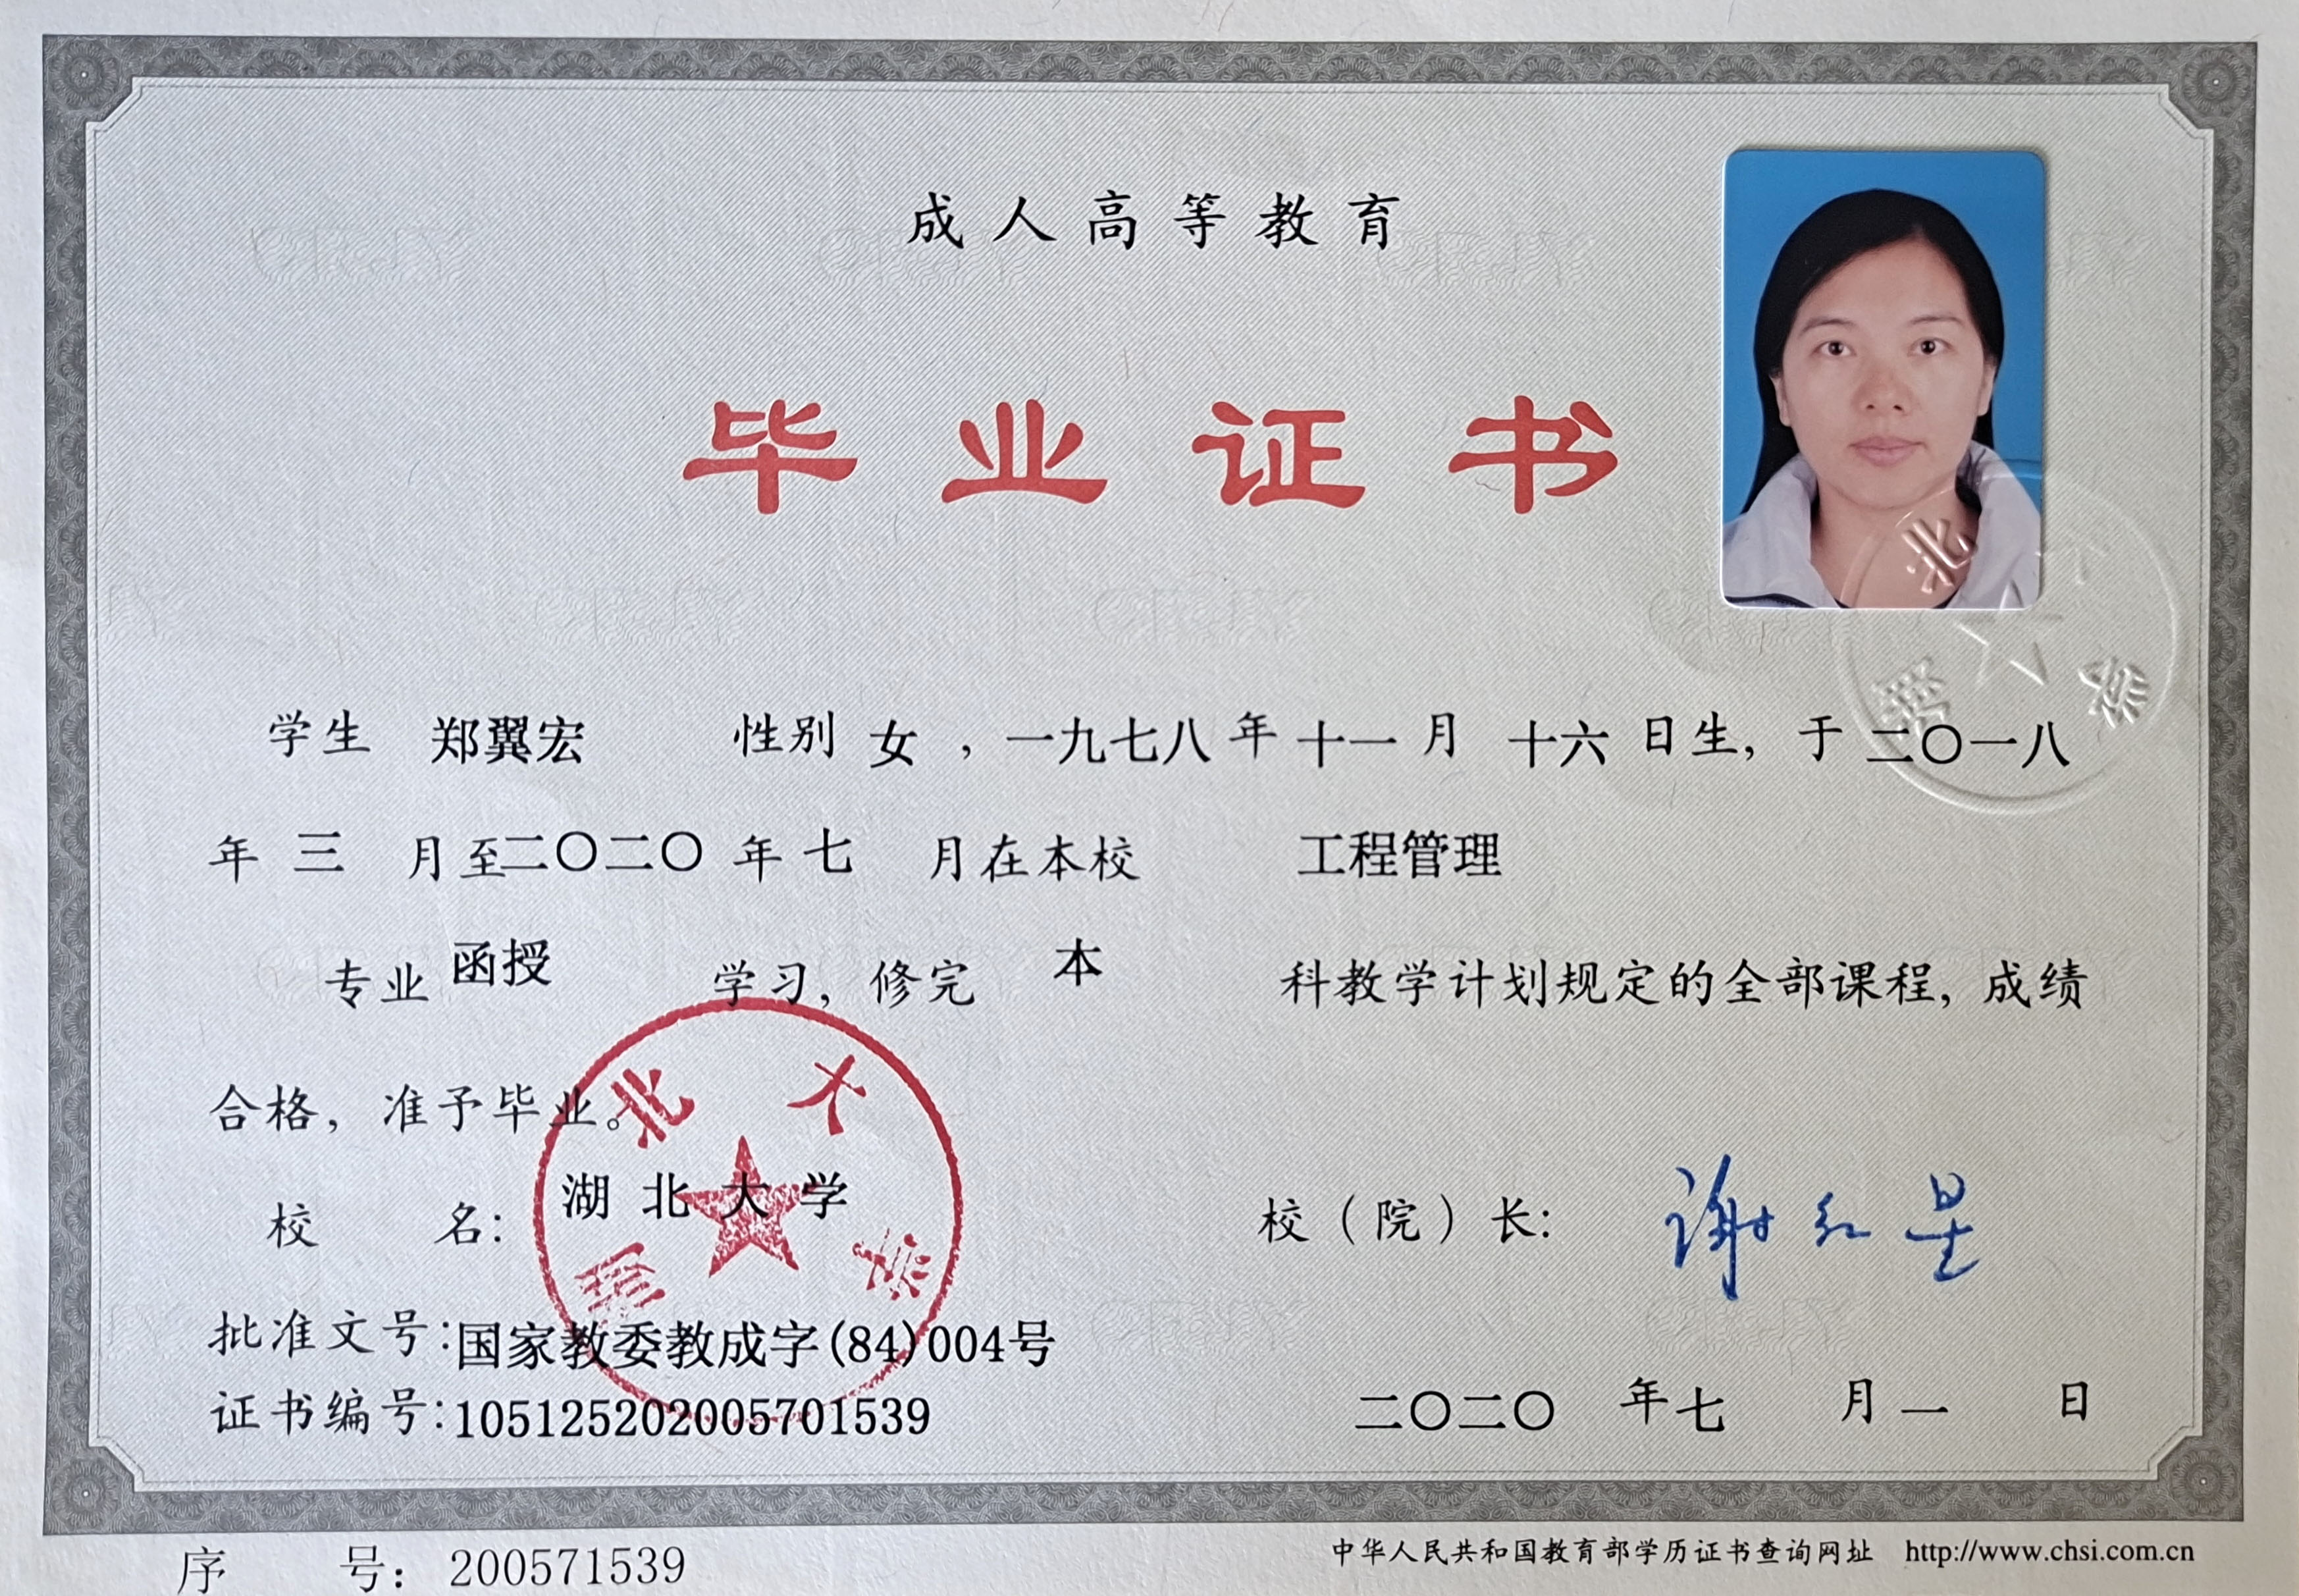 成人高等教育
毕业证书
学生 郑翼宏 性别 女 ，一九七八 年 十一 月 十六 日生，于 二〇一八
年 三 月至二〇二〇 年 七 月在本校 工程管理
专业 函授 学习，修完 本 科教学计划规定的全部课程，成绩
合格，准予毕业。
校 名：湖北大学
校（院）长：谢红星
批准文号：国家教委教成字(84)004号
证书编号：105125202005701539
二〇二〇 年 七 月 一 日
湖北大学
湖北大学
序 号：200571539
中华人民共和国教育部学历证书查询网址 http://www.chsi.com.cn